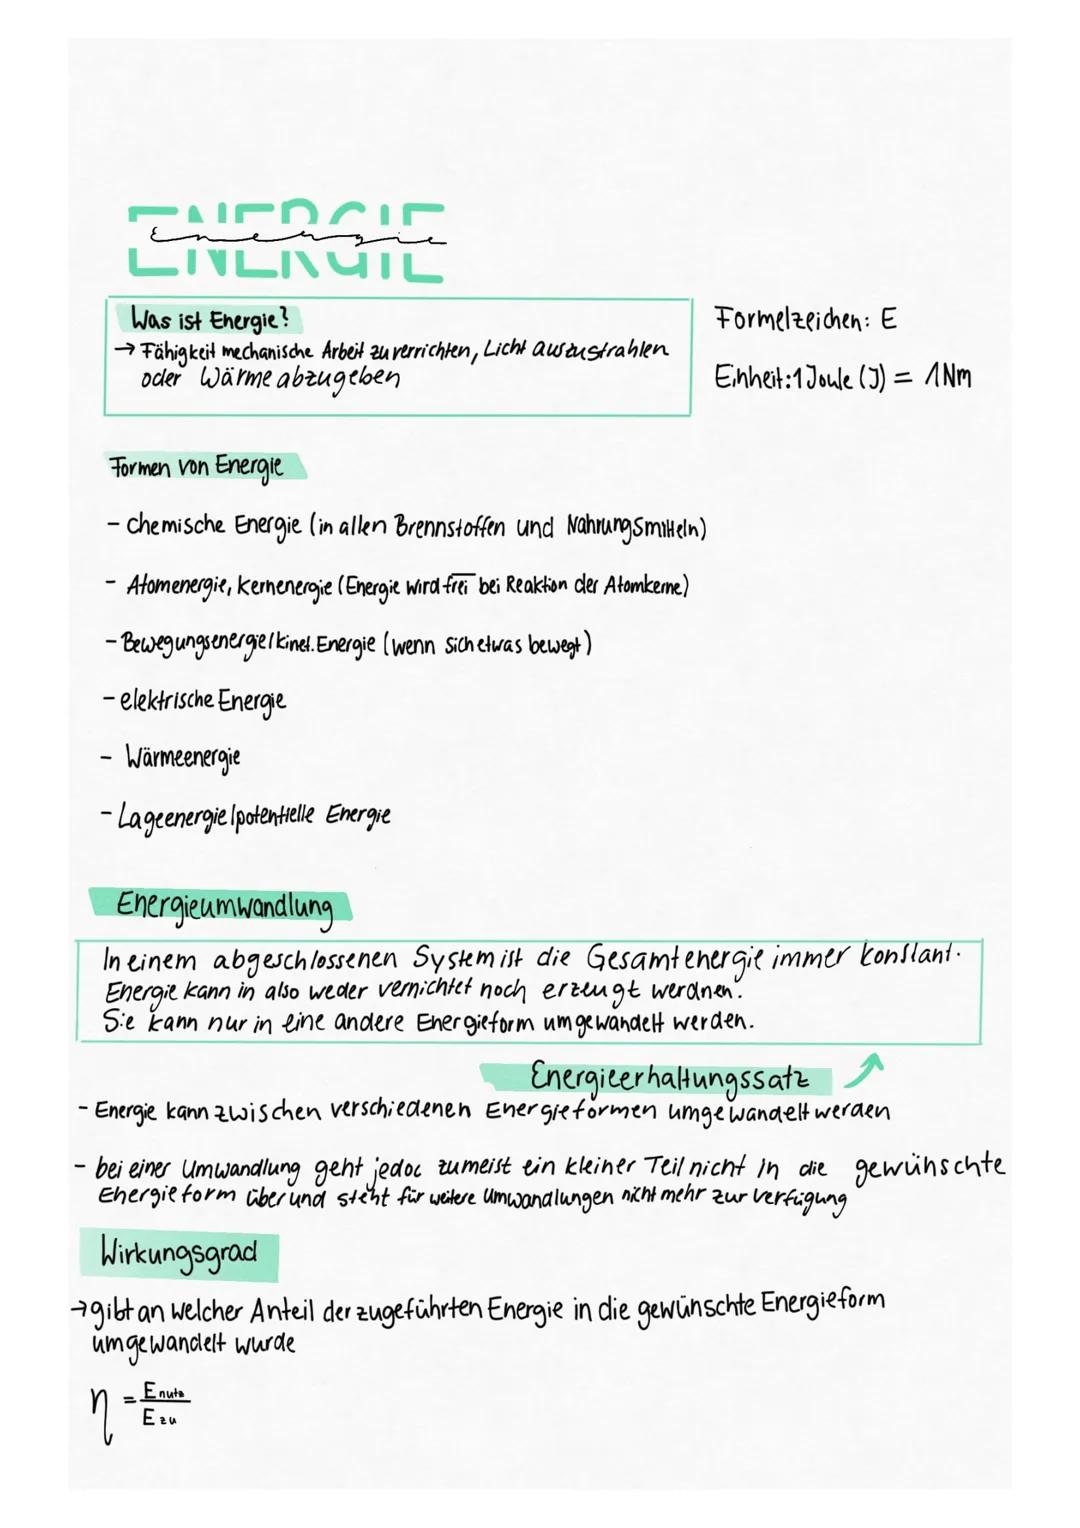 ENERGIE
Energie
Was ist Energie?
→ Fähigkeit mechanische Arbeit zu verrichten, Licht auszustrahlen
oder Wärme abzugeben
Formelzeichen: E
Einheit: 1 Joule (J) = 1 Nm
Formen von Energie
- chemische Energie (in allen Brennstoffen und Nahrungsmitteln)
- Atomenergie, Kernenergie (Energie wird frei bei Reaktion der Atomkerne)
- Bewegungsenergie/kinet. Energie (wenn sich etwas bewegt)
- elektrische Energie
- Wärmeenergie
- Lageenergie/potentielle Energie
Energieumwandlung
In einem abgeschlossenen System ist die Gesamtenergie immer konstant.
Energie kann in also weder vernichtet noch erzeugt werdnen.
Sie kann nur in eine andere Energieform umgewandelt werden.
Energieerhaltungssatz
- Energie kann zwischen verschiedenen Energieformen umgewandelt werden
- bei einer Umwandlung geht jedoc zumeist ein kleiner Teil nicht in die gewünschte
Energieform über und steht für weitere Umwandlungen nicht mehr zur Verfügung
Wirkungsgrad
→ gibt an welcher Anteil der zugeführten Energie in die gewünschte Energieform
umgewandelt wurde
η = E nutz / E zu